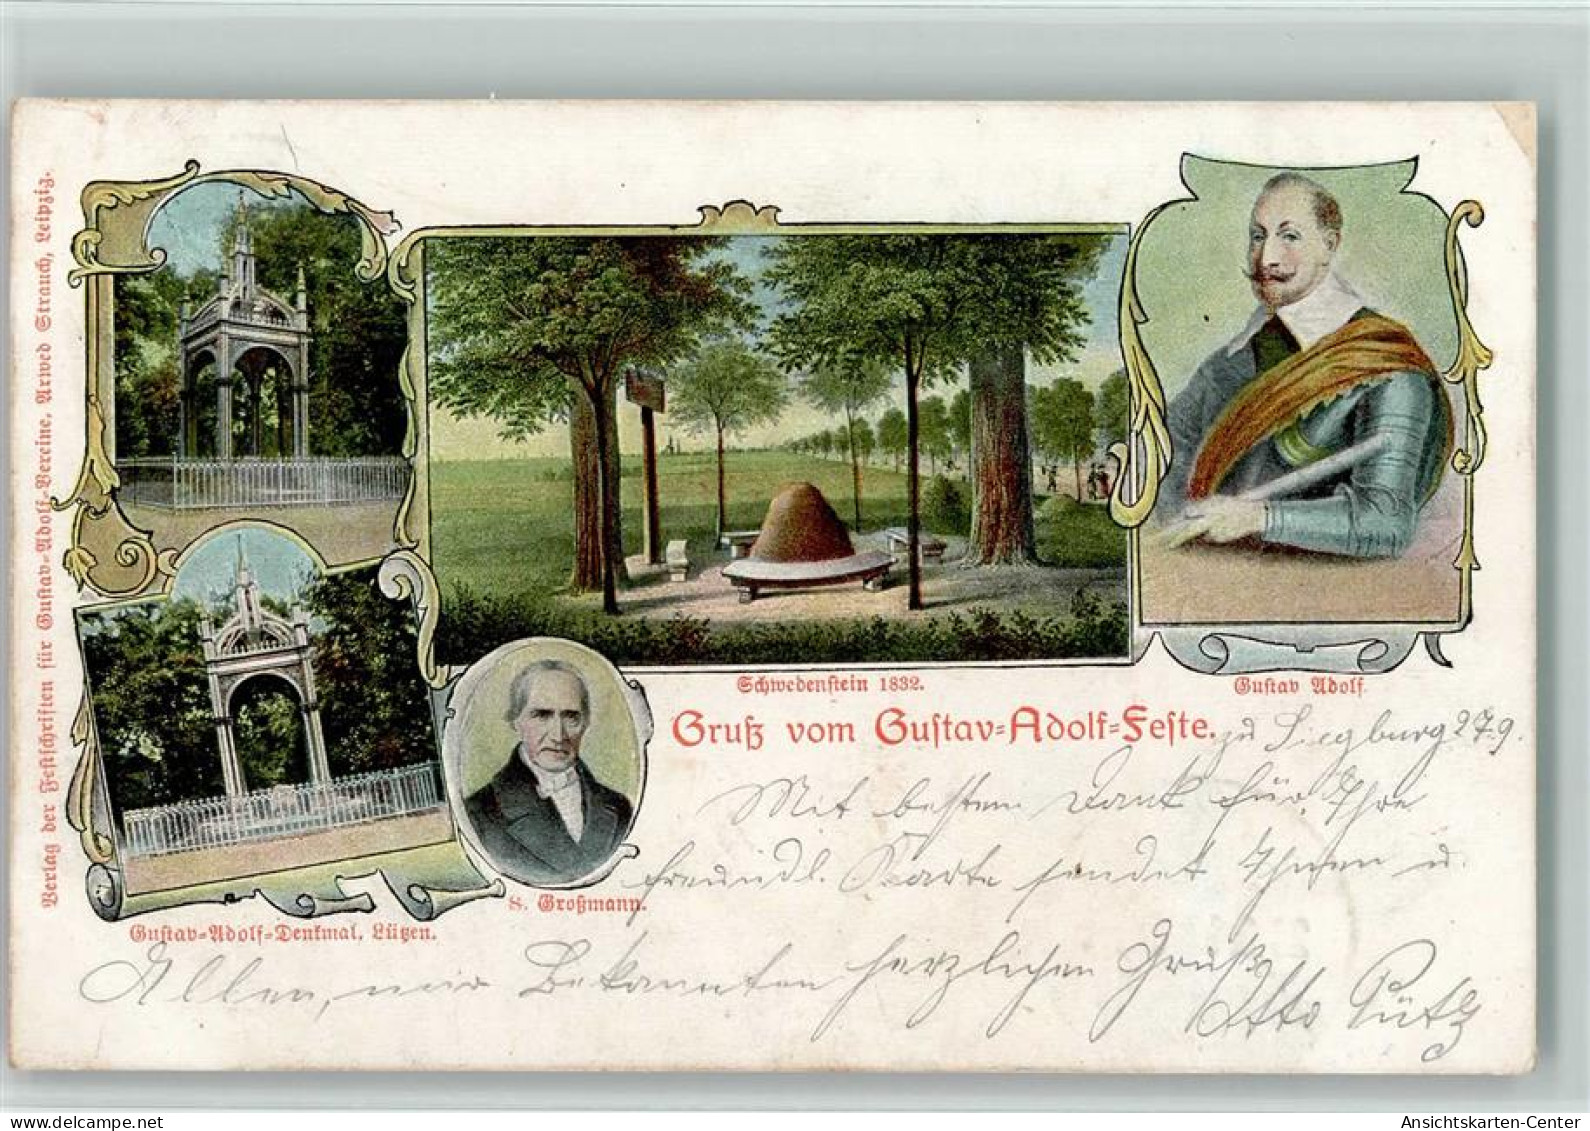 Verlag der Festschriften für Gustav-Adolf-Vereine, Arwed Strauch, Leipzig.
Schwedenstein 1832.
Gustav Adolf.
Gruß vom Gustav-Adolf-Feste.
zu Siegburg 27.9.
Mit bestem Dank für Ihre
freundl. Karte sendet Ihnen u.
S. Großmann.
Gustav-Adolf-Denkmal, Lützen.
Allen, mir Bekannten herzlichen Gruß
Otto Pütz
www.delcampe.net
Ansichtskarten-Center